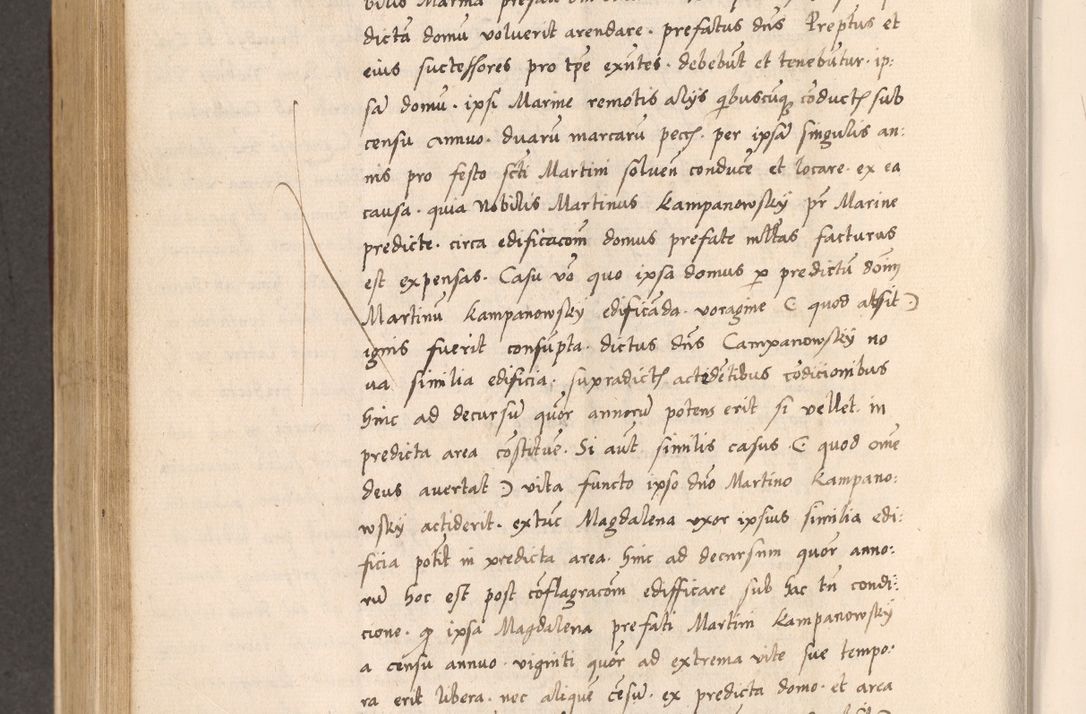 dictã domũ voluerit arendare · prefatus dns Preptus et
eius successores pro tpe exñtes · debebũt et tenebũtur · ip:
sã domũ · ipsi Marine remotis alijs qibuscũqz cõduct~ sub
censu annuo · duarũ marcarũ pecc~ · per ipsã singulis an:
nis pro festo scti Martini solueñ conduce~ et locare · ex ea
causa · quia Nobilis Martinus Kampanowskj pr Marine
predicte · circa edificacom domus prefate mltas facturus
est expensas · Casu vo quo ipsa domus p predictũ dom
Martinũ Kampanowskj edificãda · voragine ( quod absit )
ignis fuerit consũpta · dictus dns Campanowskj no
ua similia edificia · supradict~ accidẽtibus cõdicionibus
hinc ad decursũ quor annorũ potens erit si vellet · in
predicta area cõstitue~ · Si aũt similis casus ( quod ome
deus auertat ) vita functo ipso dño Martino Kampano:
wskj acciderit · extũc Magdalena vxor ipsius similia edi:
ficia potit in predicta area · hinc ad decursum quor anno:
rũ hoc est post cõflagracom edifficare sub hac tñ condi:
cione · q ipsa Magdalena prefati Martini Kampanowskj
a censu annuo · viginti quor ad extrema vite sue tempo:
ra erit libera · nec aliquẽ cẽsũ · ex predicta domo · et area